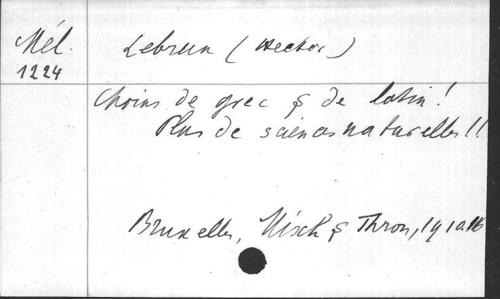 Mél.
1224
Lebrun (Hector)
Moins de grec & de latin!
Plus de sciences naturelles!!
Bruxelles, Misch & Thron, 191